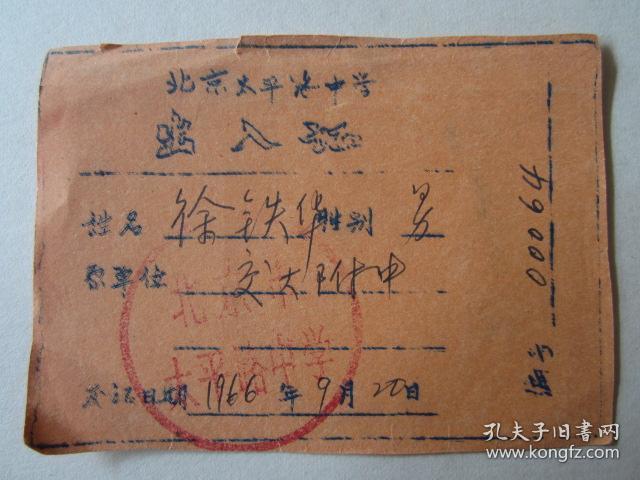 北京太平路中学
出入证
姓名 徐铁华 性别 男
原单位 交大附中
发证日期 1966年9月20日
编号 00064
孔夫子旧书网
www.kongfz.com